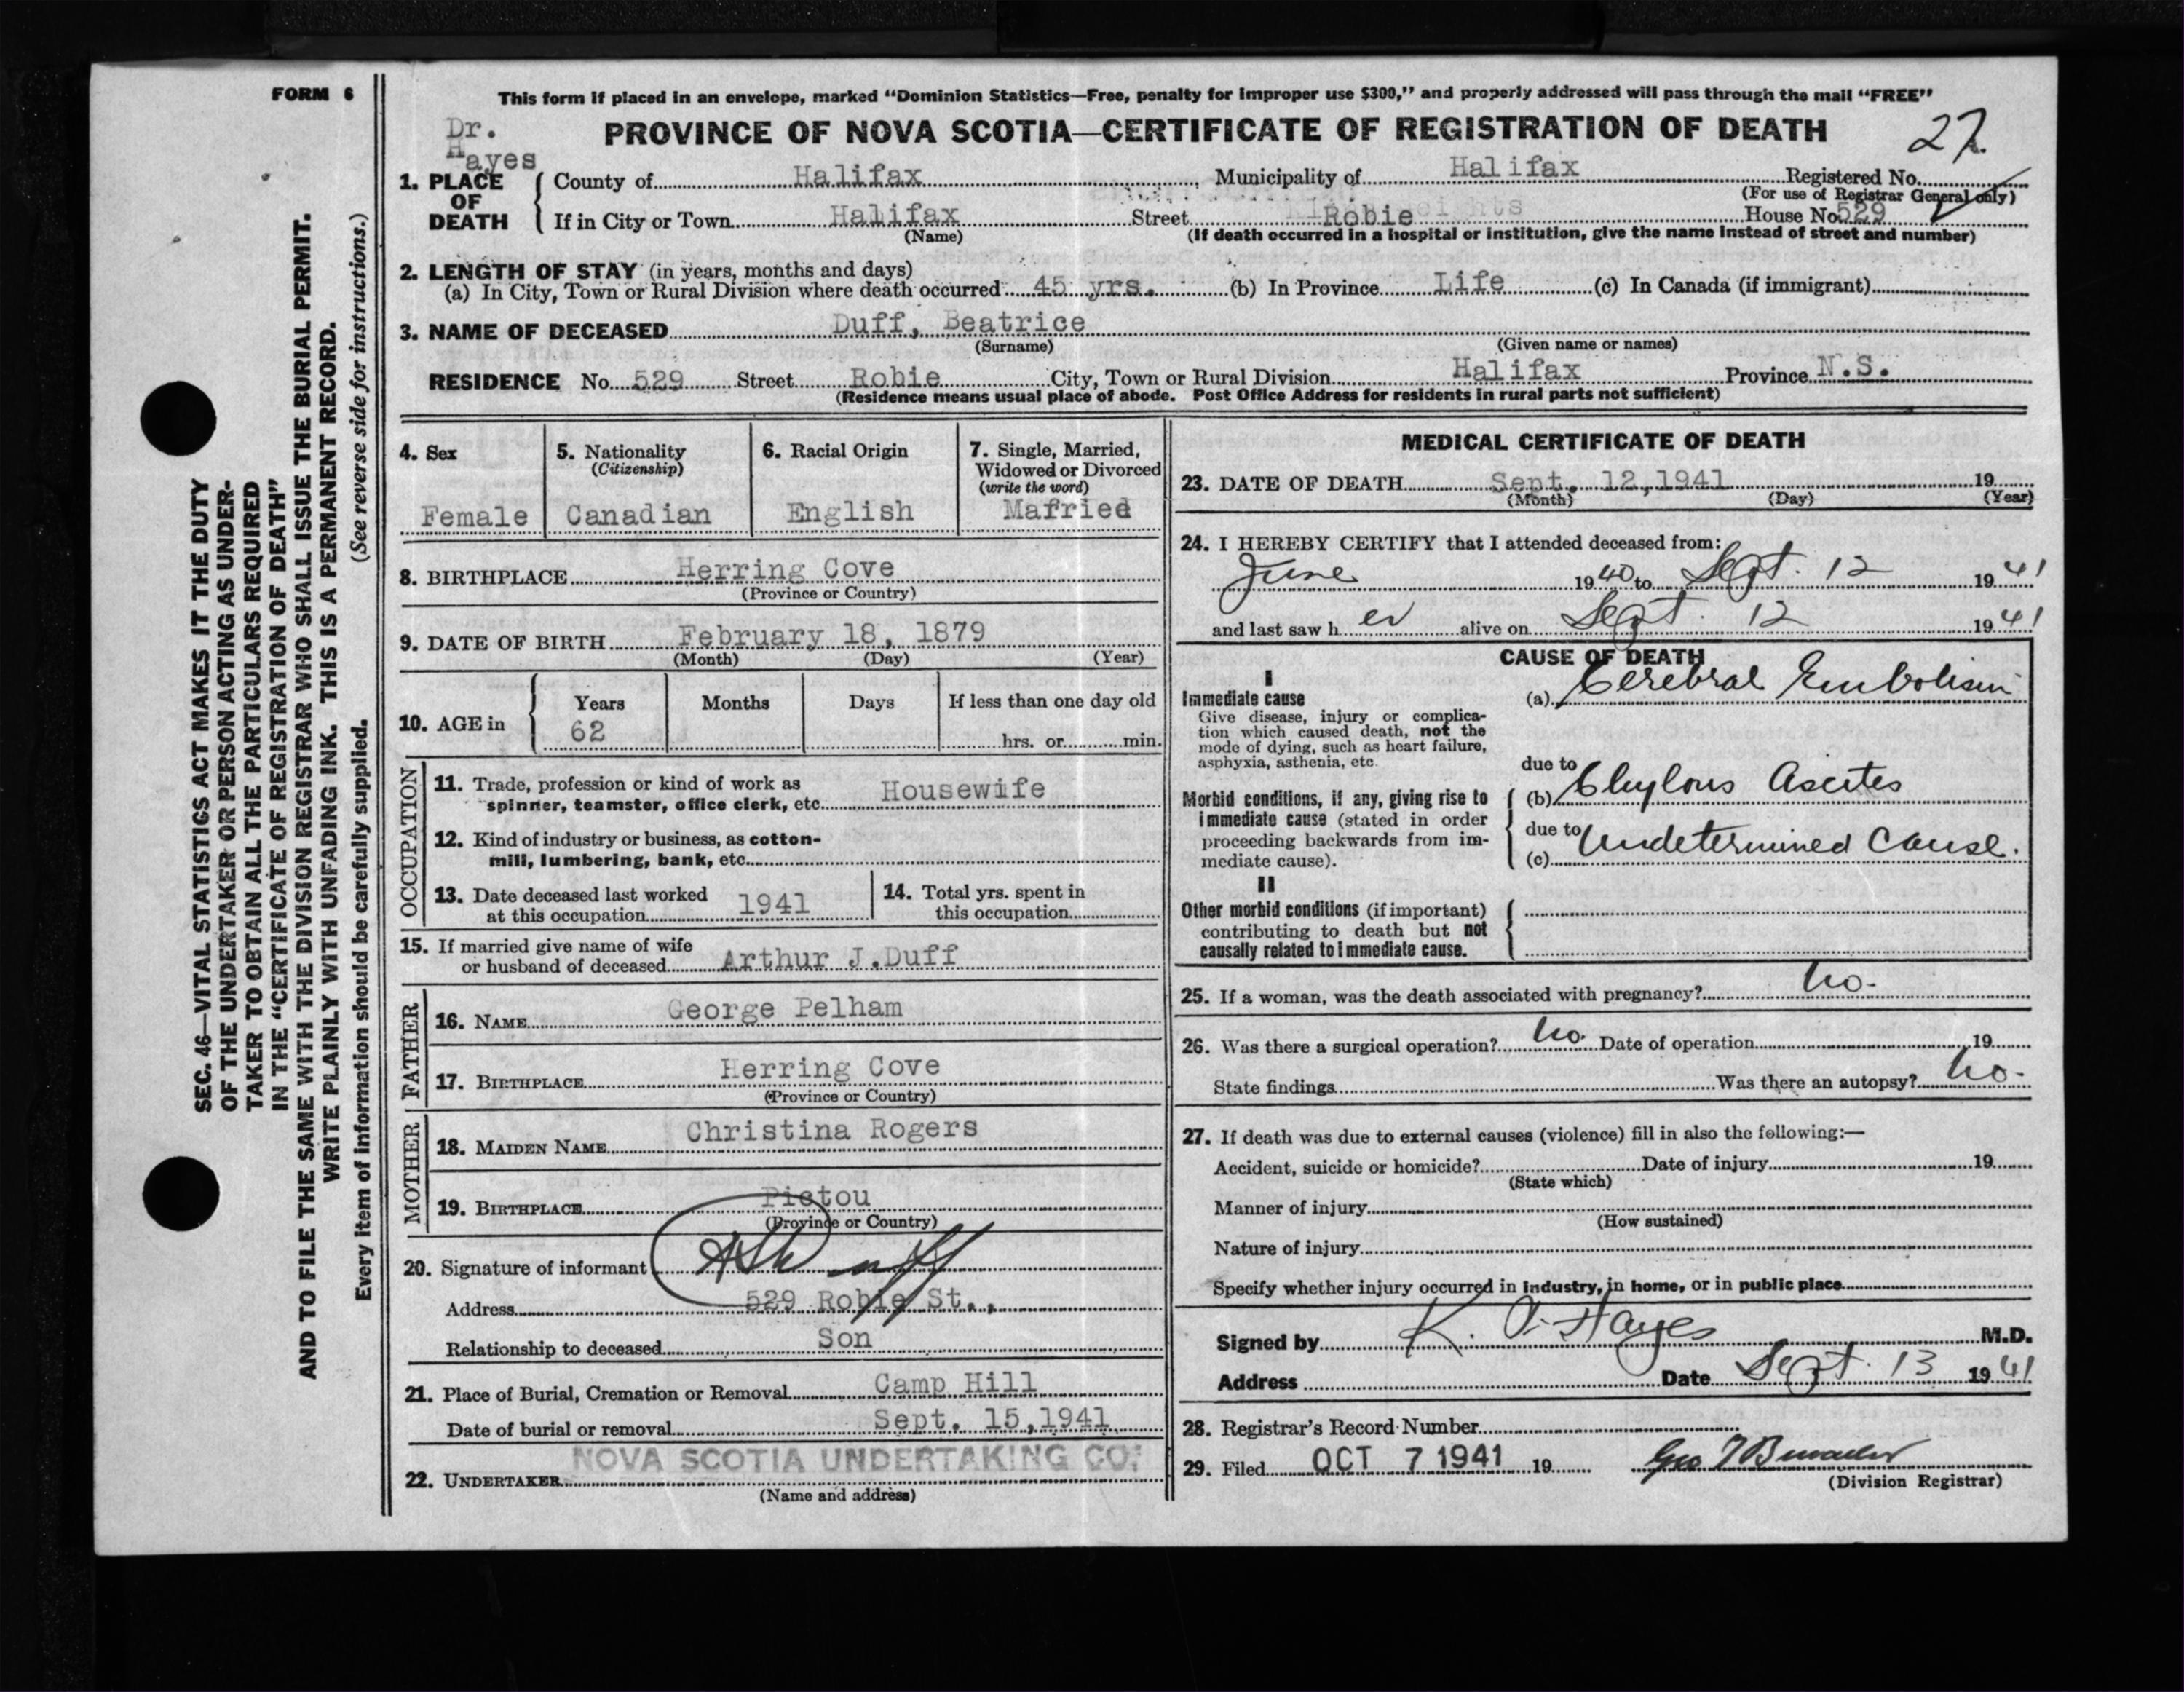 FORM 6
This form if placed in an envelope, marked “Dominion Statistics—Free, penalty for improper use $300,” and properly addressed will pass through the mail “FREE”
Dr.
Hayes
PROVINCE OF NOVA SCOTIA—CERTIFICATE OF REGISTRATION OF DEATH
27
1. PLACE OF DEATH
County of Halifax Municipality of Halifax Registered No.
(For use of Registrar General only)
If in City or Town Halifax Street Robie House No. 529
(Name) (If death occurred in a hospital or institution, give the name instead of street and number)
2. LENGTH OF STAY (in years, months and days)
(a) In City, Town or Rural Division where death occurred 45 yrs. (b) In Province Life (c) In Canada (if immigrant)
3. NAME OF DECEASED Duff, Beatrice
(Surname) (Given name or names)
RESIDENCE No. 529 Street Robie City, Town or Rural Division Halifax Province N.S.
(Residence means usual place of abode. Post Office Address for residents in rural parts not sufficient)
4. Sex
Female
5. Nationality
(Citizenship)
Canadian
6. Racial Origin
English
7. Single, Married,
Widowed or Divorced
(write the word)
Mafried
8. BIRTHPLACE Herring Cove
(Province or Country)
9. DATE OF BIRTH February 18, 1879
(Month) (Day) (Year)
10. AGE in
Years Months Days If less than one day old
62 hrs. or min.
OCCUPATION
11. Trade, profession or kind of work as
spinner, teamster, office clerk, etc. Housewife
12. Kind of industry or business, as cotton-
mill, lumbering, bank, etc.
13. Date deceased last worked
at this occupation 1941
14. Total yrs. spent in
this occupation
15. If married give name of wife
or husband of deceased Arthur J.Duff
FATHER
16. NAME George Pelham
17. BIRTHPLACE Herring Cove
(Province or Country)
MOTHER
18. MAIDEN NAME Christina Rogers
19. BIRTHPLACE Pictou
(Province or Country)
20. Signature of informant
Address 529 Robie St.,
Relationship to deceased Son
21. Place of Burial, Cremation or Removal Camp Hill
Date of burial or removal Sept. 15,1941
NOVA SCOTIA UNDERTAKING CO.
22. UNDERTAKER
(Name and address)
MEDICAL CERTIFICATE OF DEATH
23. DATE OF DEATH Sept. 12,1941 19
(Month) (Day) (Year)
24. I HEREBY CERTIFY that I attended deceased from:
June 1940 to Sept. 12 1941
and last saw h er alive on Sept. 12 1941
CAUSE OF DEATH
I
Immediate cause
Give disease, injury or complica-
tion which caused death, not the
mode of dying, such as heart failure,
asphyxia, asthenia, etc.
(a) Cerebral Embolism
due to
Morbid conditions, if any, giving rise to
immediate cause (stated in order
proceeding backwards from im-
mediate cause).
(b) Chylous Ascites
due to
(c) Undetermined Cause.
II
Other morbid conditions (if important)
contributing to death but not
causally related to immediate cause.
25. If a woman, was the death associated with pregnancy? no.
26. Was there a surgical operation? no. Date of operation 19
State findings Was there an autopsy? no.
27. If death was due to external causes (violence) fill in also the following:—
Accident, suicide or homicide? Date of injury 19
(State which)
Manner of injury
(How sustained)
Nature of injury
Specify whether injury occurred in industry, in home, or in public place
Signed by K. A. Hayes M.D.
Address Date Sept. 13 1941
28. Registrar's Record Number
29. Filed OCT 7 1941 19
(Division Registrar)
SEC. 46—VITAL STATISTICS ACT MAKES IT THE DUTY
OF THE UNDERTAKER OR PERSON ACTING AS UNDER-
TAKER TO OBTAIN ALL THE PARTICULARS REQUIRED
IN THE “CERTIFICATE OF REGISTRATION OF DEATH”
AND TO FILE THE SAME WITH THE DIVISION REGISTRAR WHO SHALL ISSUE THE BURIAL PERMIT.
WRITE PLAINLY WITH UNFADING INK. THIS IS A PERMANENT RECORD.
Every item of information should be carefully supplied. (See reverse side for instructions.)